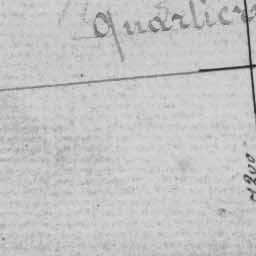 Quartier
1200